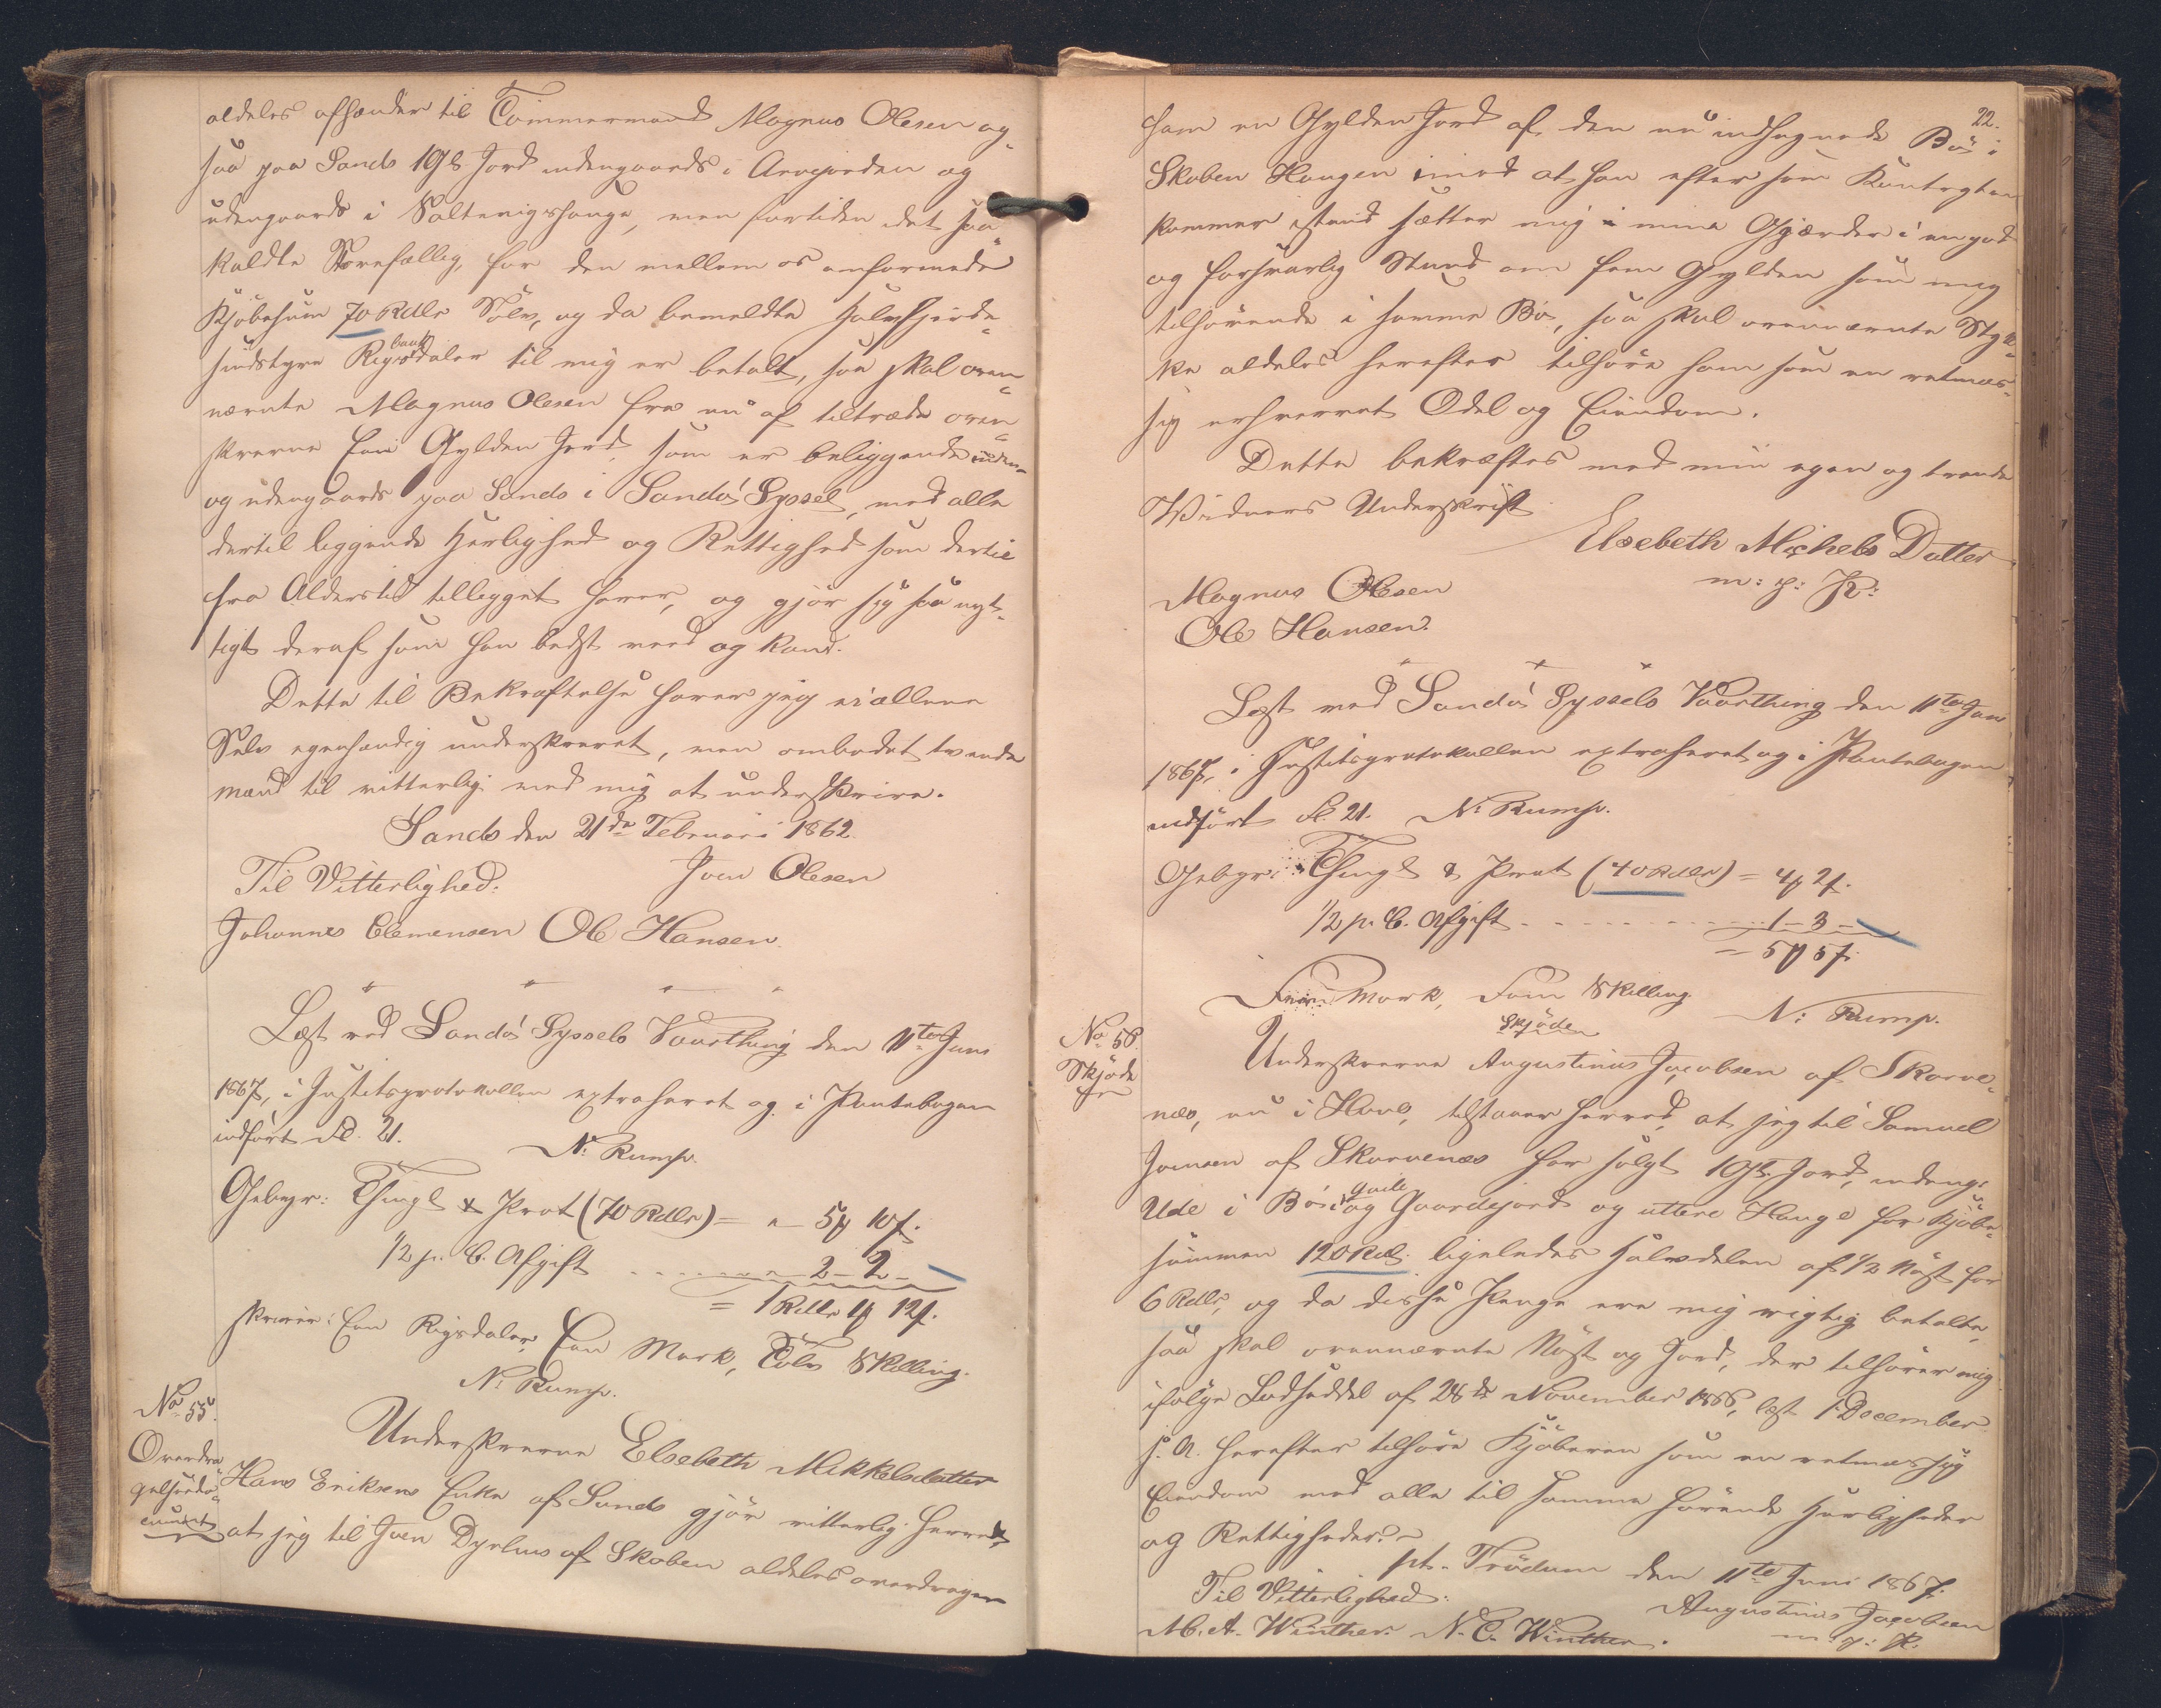 aldeles afhænder til Tømmermand Magnus Olesen og-
saa paa Sands 1 Gl. Jord indengaards i Arvejorden og
udengaards i Saltevigshauge, men fortiden det saa-
kaldte Storefællig, for den mellem os omformede
Kjøbesum 70 Rdlr Sølv, og da bemeldte halvfjerde-
sindstyve Rigsbankdaler til mig er betalt, saa skal oven-
nævnte Magnus Olesen fra nu af tiltræde oven-
skrevne Een Gylden Jord, som er beliggende inden-
og udengaards paa Sands i Sandø Syssel, med alle
dertil liggende Herlighed og Rettighed som dertil
fra Alderstid tillegget haver, og gjør sig saa nyt-
tigt deraf som han bedst veed og kand.
Dette til Bekræftelse haver jeg ei allene
Selv egenhændig underskrevet, men ombedet tvende
mænd til vitterlig med mig at underskrive.
Sands den 21de Februari 1862.
Til Vitterlighed: Joen Olesen
Johannes Clemensen Ole Hansen.
Læst ved Sandø Syssels Vaarthing den 11te Juni
1867, i Justitsprotokollen extraheret og i Pantebogen
indført Fol. 21. N: Rump.
Gebyr: Thingl & Prot (70 Rdlr) = " – 5 Mk 10 s.
1/2 p. C. Afgift 2 – 2 –
= 1 Rdlr 1 Mk 12 s.
skriver: Een Rigsdaler, Een Mark, Tolv Skilling.
N: Rump.
No 55.
Overdra-
gelsesdo-
cument
Underskrevne Elsebeth Mikkelsdatter
Hans Eriksens Enke af Sands gjør vitterlig herved,
at jeg til Joen Dyrhus af Skoben aldeles overdrager
22.
ham en Gylden Jord af den nu indhegnede Bø i
Skoben Haugen imod at han eftersom Kontragten
kommer istand sætter mig i mine Gjærder i en god
og forsvarlig Stand om fem Gylden som mig
tilhørende i samme Bø, saa skal ovennævnte Styk-
ke aldeles herefter tilhøre ham som en retmæs-
sig erhvervet Odel og Eiendom.
Dette bekræftes med min egen og tvende
Widners Underskrift
Elsebeth Michels Datter
m: f: P:
Magnus Olesen
Ole Hansen.
Læst ved Sandø Syssels Vaarthing den 11te Juni
1867, i Justitsprotokollen extraheret og i Pantebogen
indført Fol. 21. N: Rump.
Gebyr: Thingl & Prot (40 Rdlr) = 4 Mk 2 s.
1/2 p. C. Afgift 1 – 3 –
= 5 Mk 5 s.
Fem Mark, Fem Skilling.
N: Rump.
No 56.
Skjøde
Skjøde
Underskrevne Augustinus Jacobsen af Skorve-
næs, nu i Huus, tilstaaer herved, at jeg til Samuel
Joensen af Skarvenæs har solgt 1 Gl. Jord, indeng:
Ude i Bø i og Gaardejord og uttere Hauge for Kjøbe-
summen 120 Rd. ligeledes halvdelen af 1/2 Nøst for
6 Rdlr, og da disse Penge ere mig rigtig betalte,
saa skal ovennævnte Nøst og Jord, der tilhører mig
ifølge Lodseddel af 28de November 1866, læst 1 December
s. A. herefter tilhøre Kjøberen som en retmæssig
Eiendom med alle til samme hørende Herligheder
og Rettigheder. –
pt. Trödum den 11te Juni 1867.
Til Vitterlighed: Augustinus Jacobsen
M. A. Winther. N. C. Winther. m: f: P: